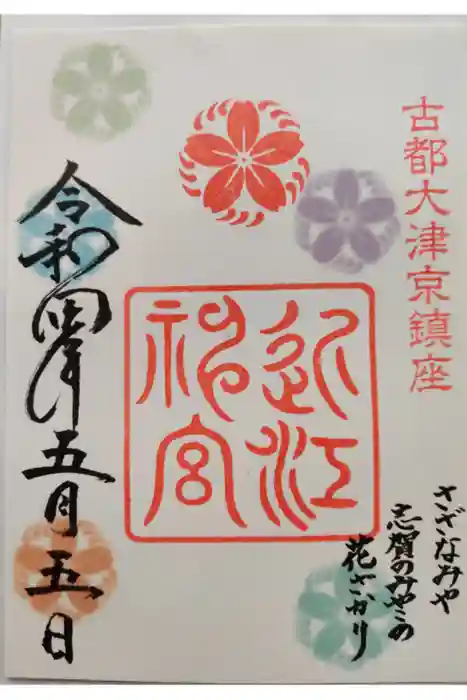 古都大津京鎮座
近江
神宮
さざなみや
志賀のみやこの
花さかり
令和四年五月五日